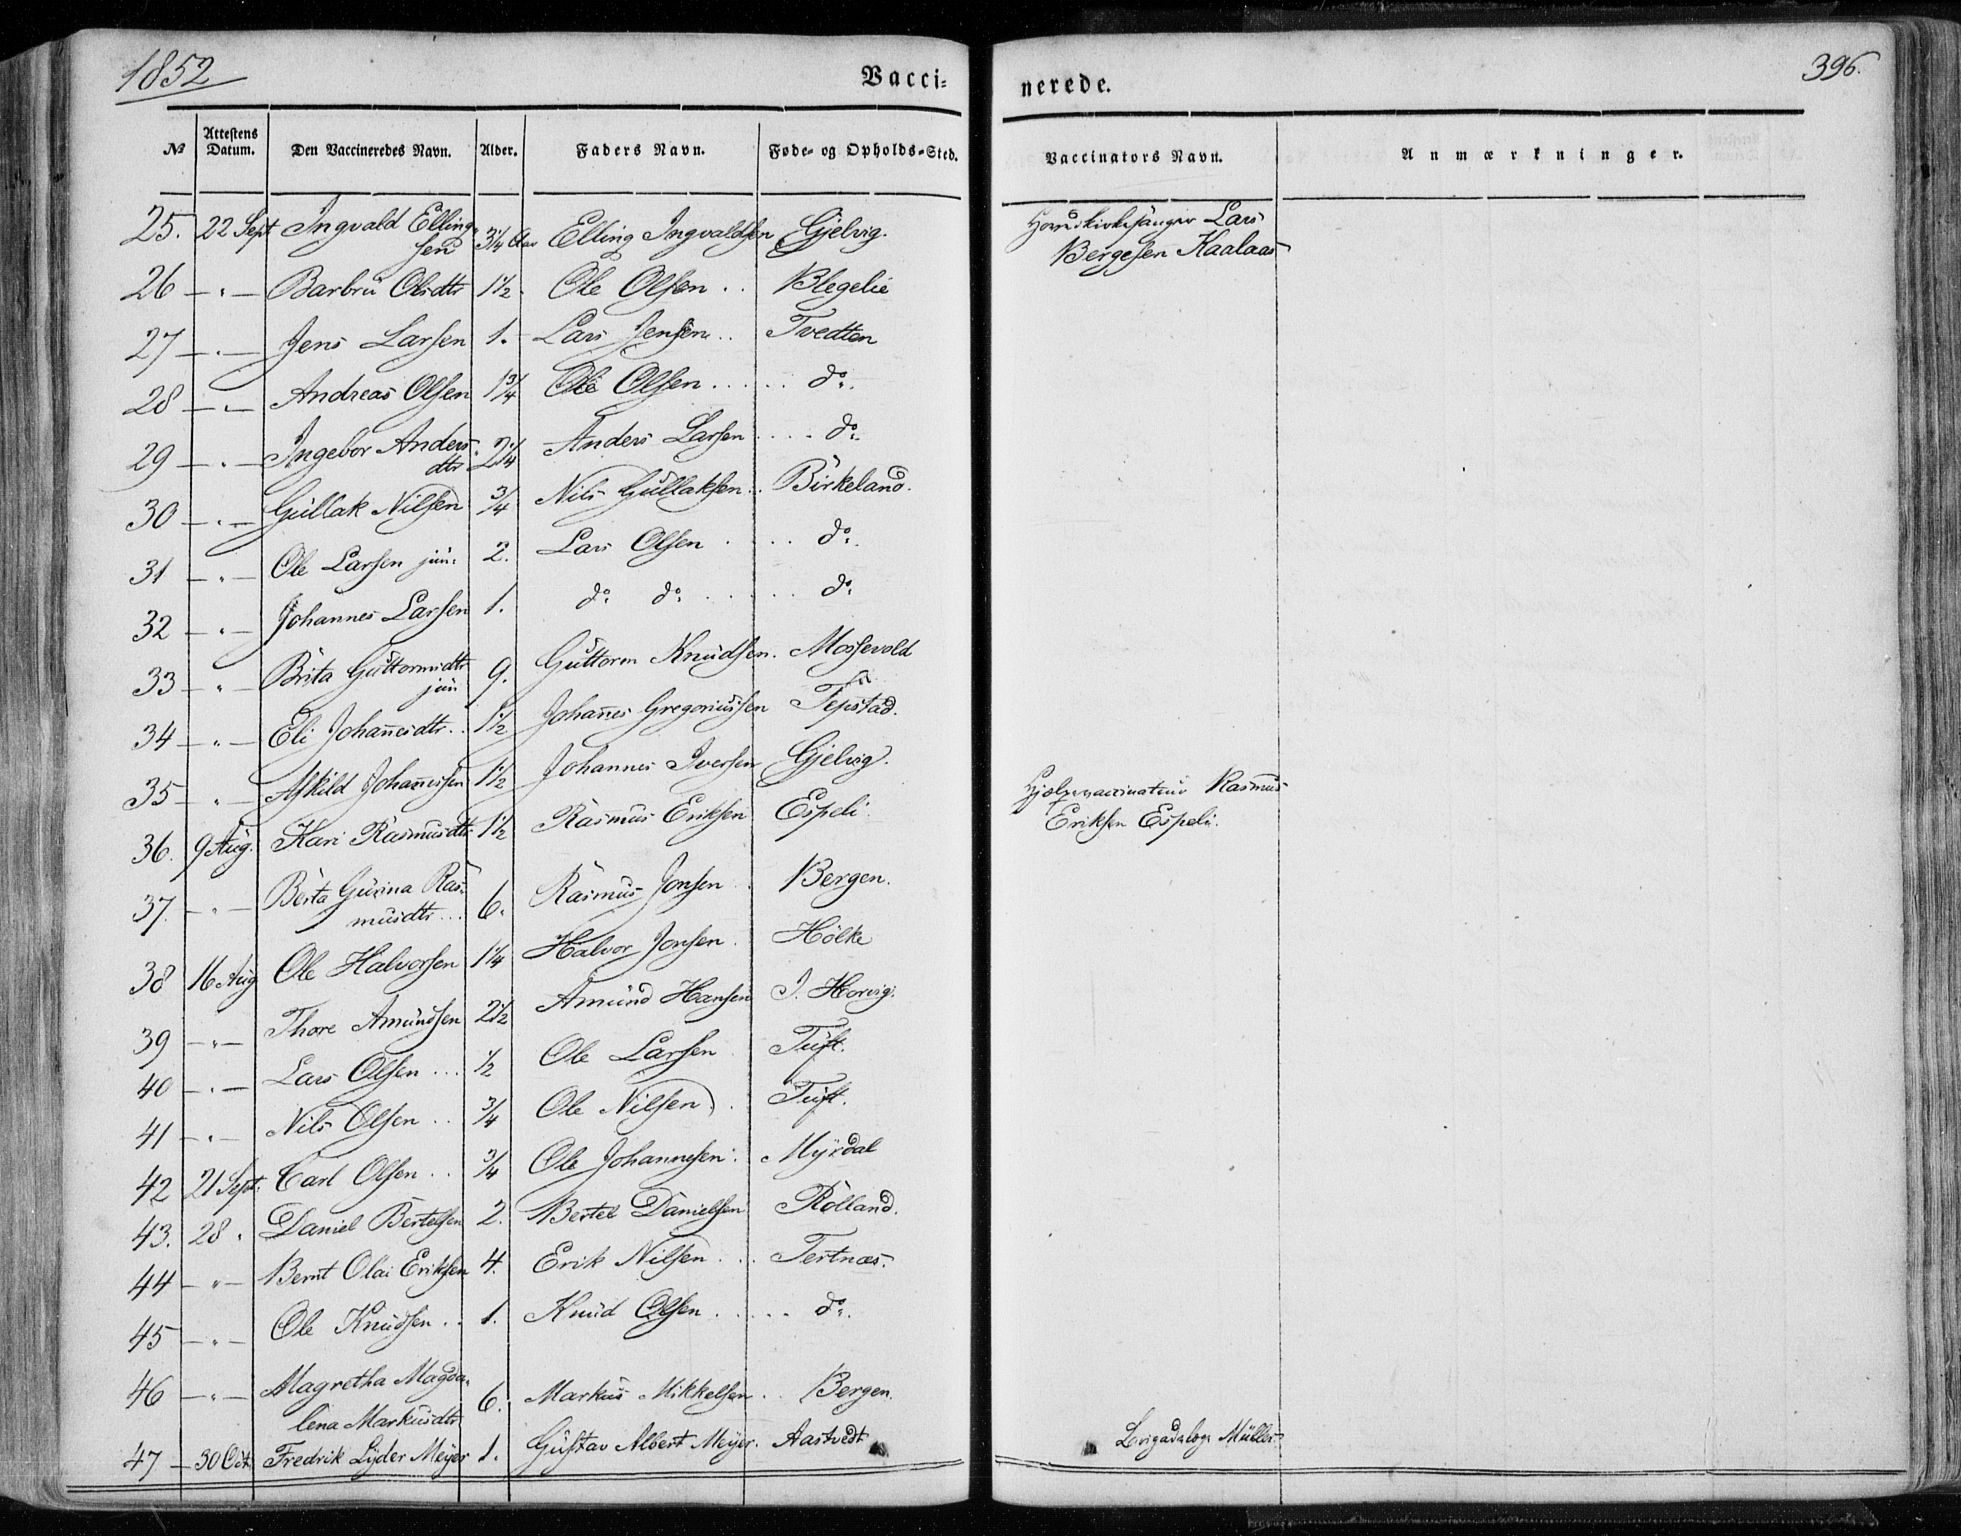 1852
Vacci-
nerede.
396.
No Attestens Datum. Den Vaccineredes Navn. Alder. Faders Navn. Føde- og Opholds-Sted. Vaccinators Navn. Anmærkninger.
25. 22 Sept Ingvald Elling- 3/4 Aar Elling Ingvaldsen Gjelvig. Lars
sen Bergesen Kaalaas
26 — " — Barbru Olsdtr 1 1/2 Ole Olsen . . Blegelie
27 — " — Jens Larsen 1. Lars Jensen . . Tvedten
28 — " — Andreas Olsen 1 3/4 Ole Olsen . . . . . do.
29 — " — Ingebor Anders- 2 1/4 Anders Larsen . . . . do.
dtr
30 — " — Gullak Nilsen 3/4 Nils Gullaksen . . Birkeland.
31 — " — Ole Larsen jun. 2. Lars Olsen . . . do.
32 — " — Johannes Larsen 1. do. do. . . . . . do.
33 — " — Brita Guttormsdtr 9. Guttorm Knudsen. Mossevold
jun
34 — " — Eli Johanesdtr. . 1 1/2 Johanes Gregoriussen Tepstad.
35 — " — Askild Johanesen 1 1/2 Johannes Iversen Gjelvig.
36. 9 Aug. Kari Rasmusdtr. 1 1/2 Rasmus Eriksen Espeli. Hjelpevaccinateur Rasmus
Eriksen Espeli.
37. — " — Berta Gurina Ras- 6. Rasmus Jonsen . Bergen.
musdtr . . .
38 16 Aug Ole Halvorsen 1 1/4 Halvor Jonsen . Hölke
39 — " — Thore Amundsen 2 1/2 Amund Hansen I. Horvig.
40 — " — Lars Olsen . . . 1/2 Ole Larsen . Tuft.
41 — " — Nils Olsen . . 3/4 Ole Nilsen . Tuft.
42 21 Sept. Carl Olsen . . 3/4 Ole Johannesen . Myrdal
43. 28 " Daniel Bertelsen 2. Bertel Danielsen Rolland.
44 — " — Bernt Olai Eriksen 4. Erik Nilsen . . . Tertnæs.
45 — " — Ole Knudsen . . 1. Knud Olsen . . . . . do.
46 — " — Magretha Magda- 6. Markus Mikkelsen . . Bergen.
lena Markusdtr
47 — 30 Oct. Fredrik Lyder Meyer 1. Gustav Albert Meyer. Aastvedt Müller